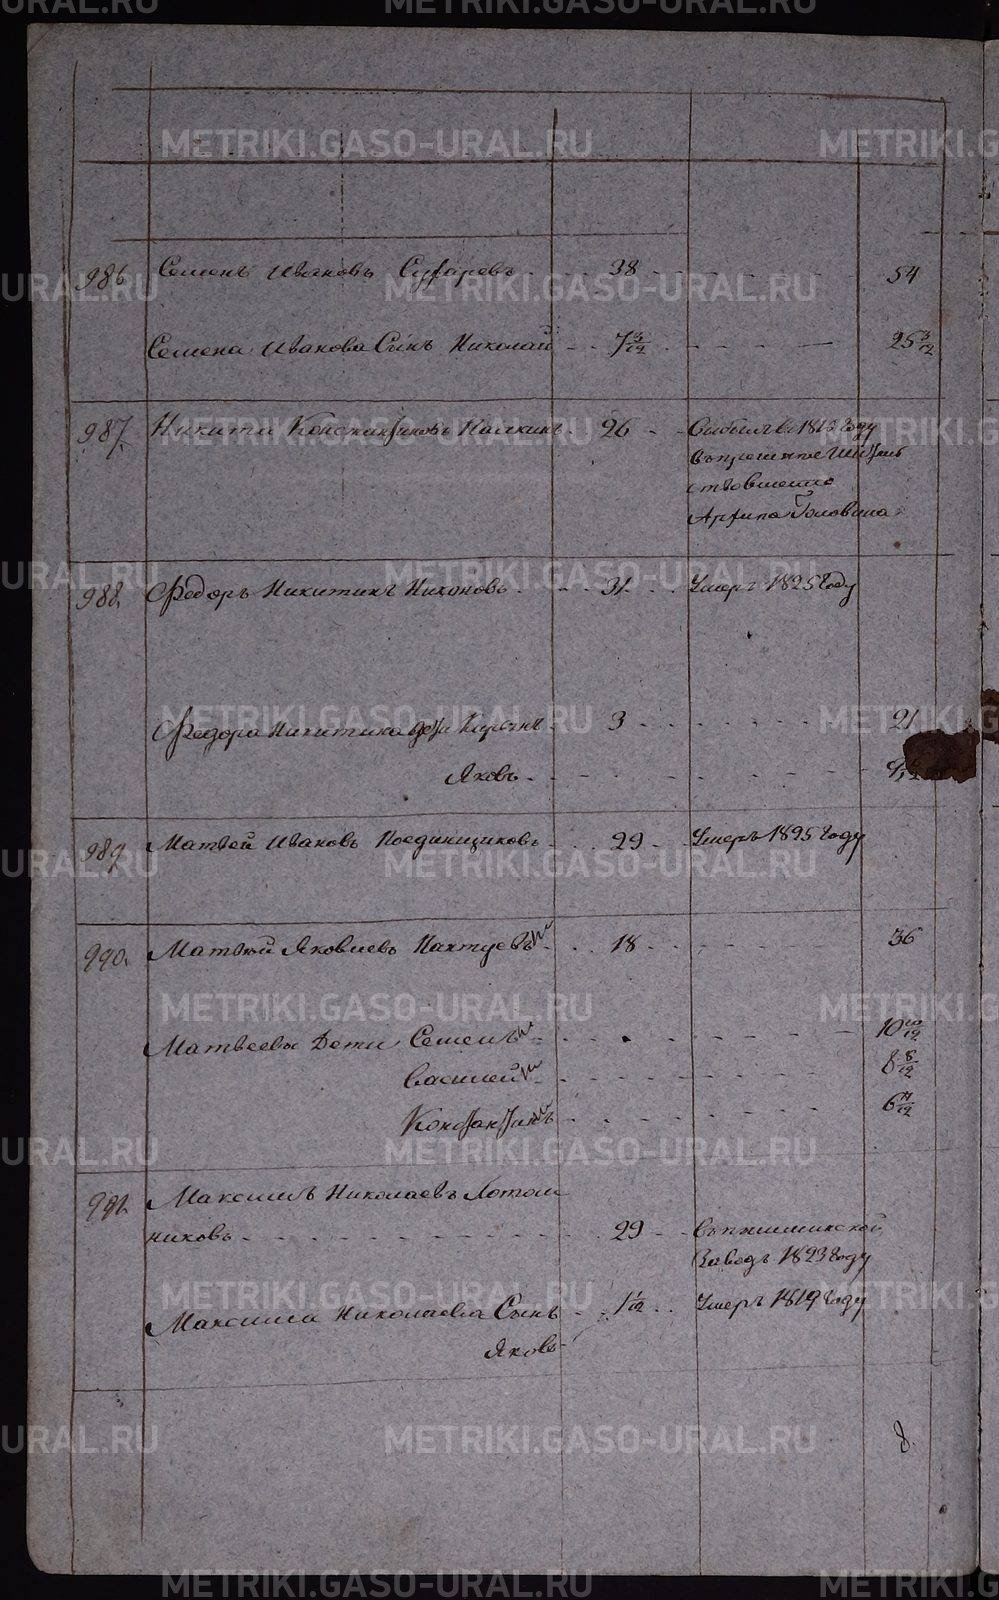 986 Семенъ Ивановъ Сухаревъ 38 54
Семена Иванова Сынъ Николай 7 3/12 25 3/12
987 Никита Константиновъ Палкинъ 26 Выбылъ въ 1813 году
Архипа Головина
988 Федоръ Никитинъ Никоновъ 31 Умеръ 1825 году
Федора Никитина дети 3 21
Яковъ
989 Матвей Ивановъ Поединщиковъ 29 Умеръ 1825 году
990 Матвей Яковлевъ Пахтуевъ 18 36
Матвеевы Дети Семенъ 10 10/12
Василей 8 8/12
Константинъ 6
991 Максимъ Николаевъ
никовъ 29 Въ пышминской
Заводъ 1823 году
Максима Николаева Сынъ 1 1/12 Умеръ 1819 году
Яковъ
8
METRIKI.GASO-URAL.RU